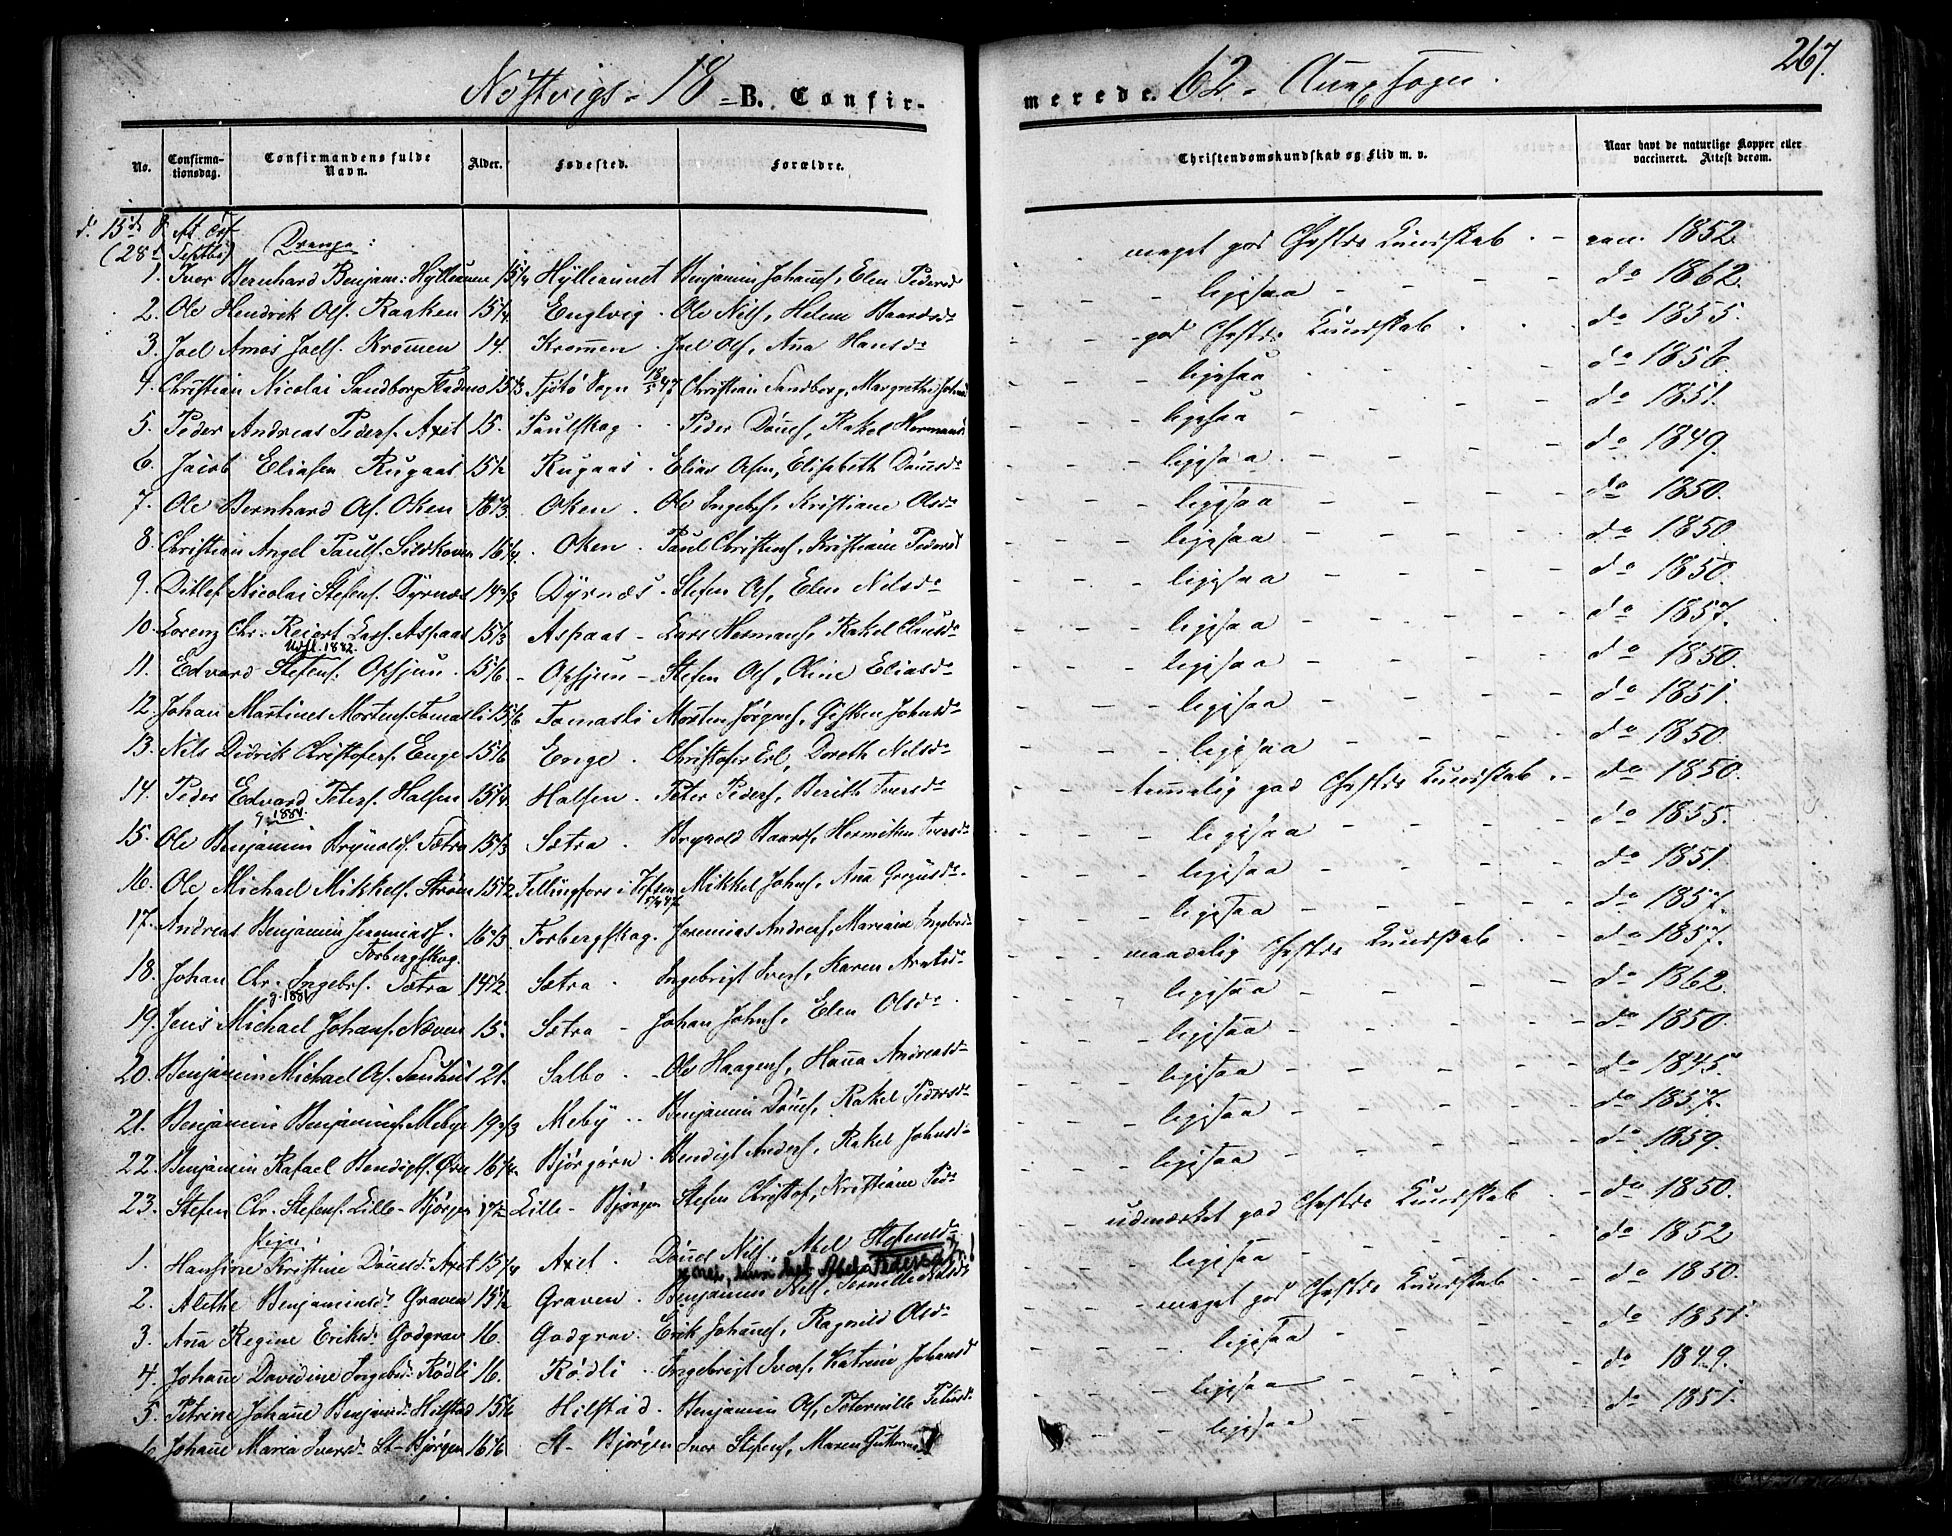 Nøstvigs - 18 - B. Confir-
merede. 62 - Annexsogn. 267.
No. Confirma-tionsdag. Confirmandens fulde Navn. Alder. Fødested. Forældre. Christendomskundskab og Flid m. v. Naar havt de naturlige Kopper eller vaccineret. Attest derom.
d. 15de
(28de Septbr) Drenge:
1. Iver Bernhard Benjam: Hylleunne 15 1/4 Hylleunnet Benjamin Johans, Elen Pedersd. meget god Chrstds Kundskab - vacc. 1852.
2. Ole Hendrik Ols. Raaken 15 1/4. Englvig - Ole Nils, Helene Baardsdr ligesaa do 1862.
3. Joel Amos Joels. Kromen 14. Kromen. Joel Ols, Ana Hansdr god Chrstds Kundskab do 1855.
4. Christian Nicolai Sandberg 15 1/3 Tjøtø Sogn 18/5 47 Christian Sandberg, Margrethe ligesaa do 1856.
5. Peder Andreas Peders. Axet 15. Paulskog - Peder Dones, Rakel Hermans ligesaa do 1851.
6. Jacob Eliasen Rugaas 15 1/2 Rugaas. Elias Olsen, Elisabeth ligesaa do 1849.
7. Ole Bernhard Ols. Oken Oken. Ole Ingebs, Kristiane Olsdr ligesaa do 1850.
8. Christian Angel Pauls. 16 1/4. Oken. Paul Christens, Kristiane Pedersd ligesaa do 1850.
9. Ditlef Nicolai Stefens. Dyrnæs 14 2/3 Dyrnæs. Stefen Ols, Elen Nilsdr ligesaa do 1850.
10. Lorenz Chr. Rejert Lars. Aspaas 15 1/3 Aspaas - Lars Hermans, Rakel Clausdr ligesaa do 1857.
Udfl. 1882.
11. Edvard Stefens. Opsjøn. 15 1/6 - Opsjøn - Stefen Ols, Oline Eliasdr ligesaa do 1850.
12. Johan Martines Mortens. Tomasli 15 1/6 Tomasli Morten Jørgens, Gisken Johnsdr ligesaa do 1851.
13. Nils Didrik Christofers. Enge 15 1/6 Enge. Christofer Erl, Doreth Nilsdr ligesaa do 1850.
14. Peder Edvard Peters. Halsen 15 1/4 Halsen. Peter Peders, Berith Iversdr temmelig god Chrstds Kundskab do 1850.
g. 1884.
15. Ole Benjamin Brynolds. Sætra 15 1/3 Sætra. Brynold Baards, Hermiken Iversdr ligesaa do 1855.
16. Ole Michael Mikkels. Strøm 15 1/2. Fellingfors i Vefsen Mikkel Johns, Ana Gregusdr. ligesaa do 1851.
17. Andreas Benjamin Jeremias. 16 2/3 Forbergskog. Jeremias Anders, Mariane Ingebr ligesaa do 1857.
Forbergskog.
18. Johan Chr. Ingebr. Sætra 14 1/2. Sætra. Ingebrigt Ivers, Karen Arntsdr maadelig Chrstds Kundskab do 1857.
g. 1881
19. Jens Michael Johans. Næven 15. Sætra - Johan Johns, Elen Olsdr ligesaa do 1862.
20. Benjamin Michael Ols. 21. Salbo. Ole Haagens, Hanna Andreasdr ligesaa do 1850.
21. Benjamin Benjamins. Mebye 19 2/3 Meby .. Benjamin Dones, Rakel Pedersdr ligesaa do 1845.
22. Benjamin Rafael Bendigts. Ørn 16 1/4. Bjørgørn. Bendigt Anders, Rakel Johnsdr ligesaa do 1857.
23. Stefen Chr. Stefens. Lille-Bjørgen 17 1/2 Lille-Bjørgen Stefen Christof, Kristiane Pedr ligesaa do 1859.
Piger:
1. Hansine Kristine Donesdr Axet 15 1/4 Axel. Dones Nils, Abel Stefensdr udmærket god Chrstds Kundskab - do 1850.
x nei, hun het Abel Pedersd.!
2. Alethe Benjaminsdr Graven 15 1/2 Graven. Benjamin Nils, Pernille ligesaa do 1852
3. Ana Regine Eriksdr Godgrav 16. Godgrav. Erik Johans, Ragnild Olsdr meget god Chrstds Kundskab do 1850.
4. Johane Davidine Ingebdr Rødli 16. Rødli. Ingebrigt Ivers, Katrine Johansd ligesaa do 1851.
5. Petrine Johane Benjamdr Hilstad 15 1/6 Hilstad. Benjamin Ols, Petternille Petersdr ligesaa do 1849.
6. Johane Maria Iversdr St-Bjørgen 16 1/6 St-Bjørgen Iver Stefens, Maren ligesaa do 1851.